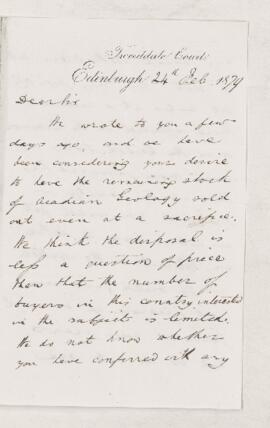 Tweeddale Court
Edinburgh 24th Feb 1879
Dear Sir
We wrote to you a few
days ago, and we have
been considering your desire
to have the remaining stock
of Acadian Geology sold
out even at a sacrifice.
We think the disposal is
less a question of price
than that the number of
buyers in this country interested
in the subject is limited.
We do not know whether
you have conferred with any